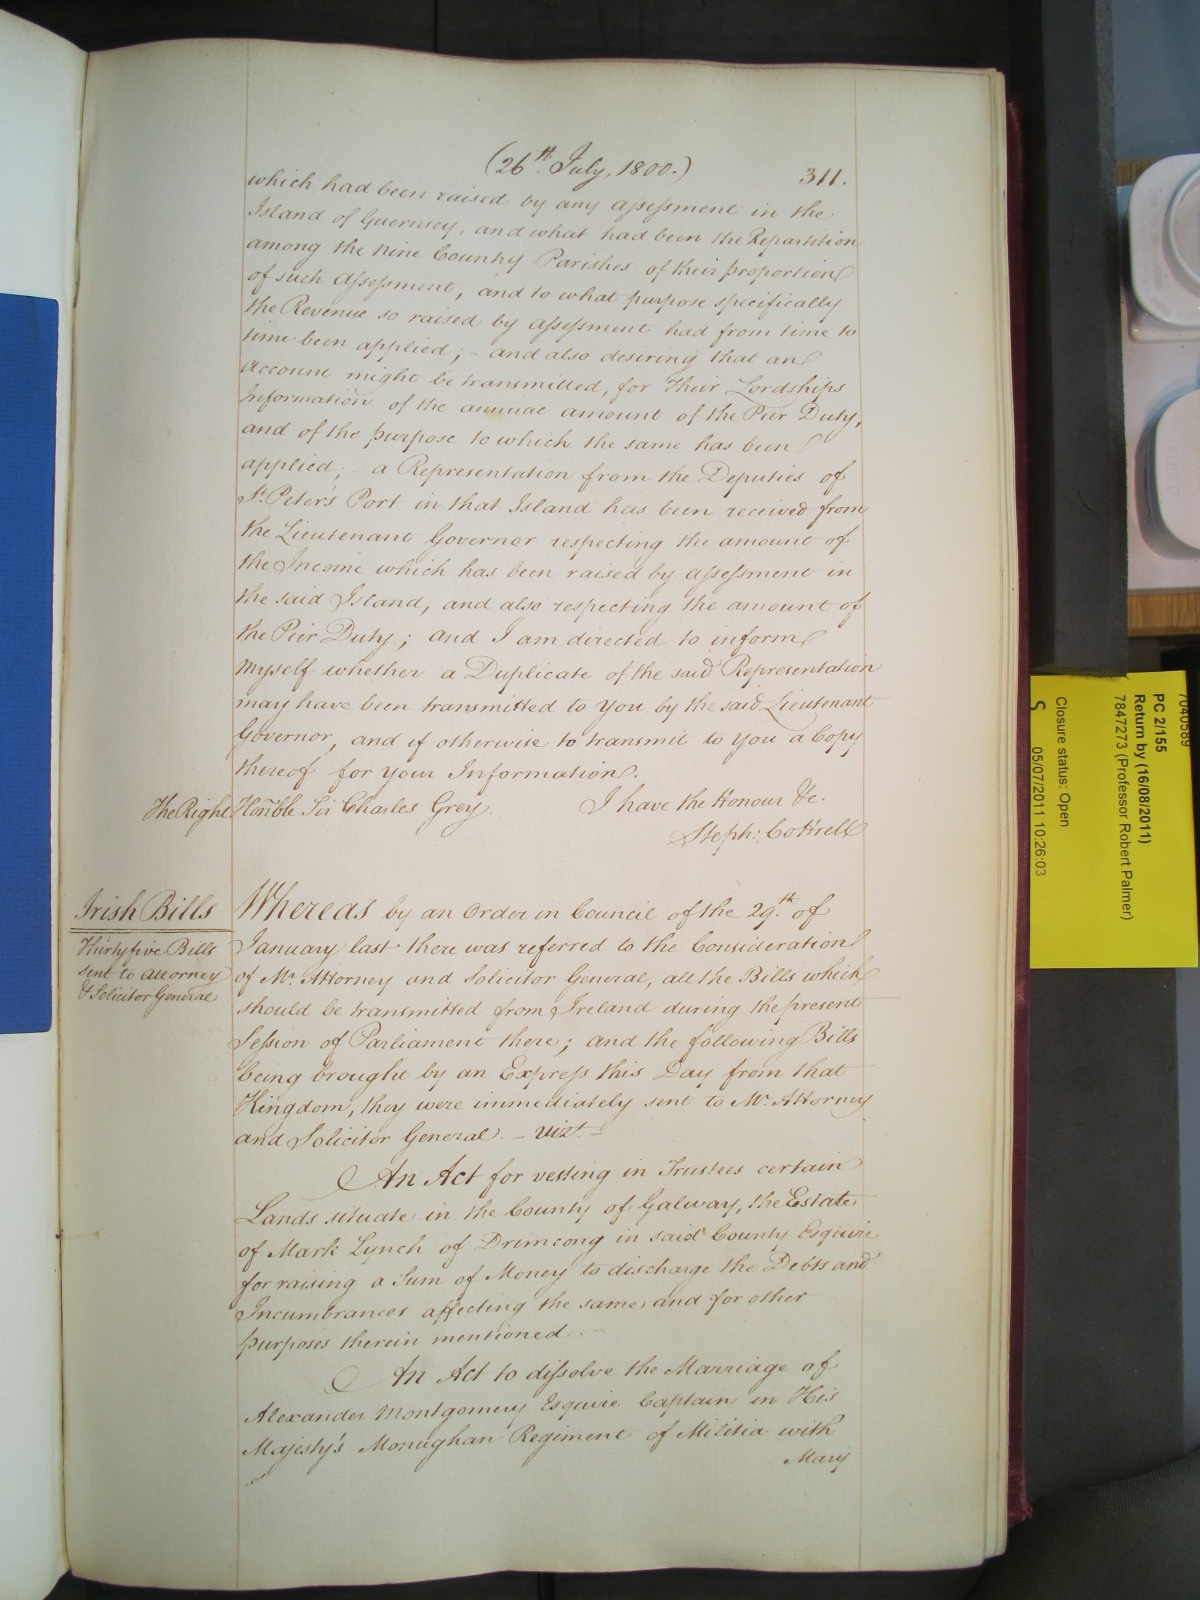 (26th. July, 1800.) 311.
which had been raised by any assessment in the
Island of Guernsey, and what had been the Repartition
among the nine County Parishes of their proportion
of such Assessment, and to what purpose specifically
the Revenue so raised by Assessment had from time to
time been applied; - and also desiring that an
Account might be transmitted, for their Lordships
Information of the annual amount of the Pier Duty,
and of the purpose to which the same has been
applied; - a Representation from the Deputies of
St. Peter's Port in that Island has been received from
the Lieutenant Governor respecting the amount of
the Income which has been raised by Assessment in
the said Island, and also respecting the amount of
the Pier Duty; and I am directed to inform
myself whether a Duplicate of the said Representation
may have been transmitted to You by the said Lieutenant
Governor, and if otherwise to transmit to You a Copy
thereof for your Information.
I have the Honour &c.
The Right Honble Sir Charles Grey.
Steph: Cottrell
Irish Bills
Thirty five Bills
sent to Attorney
& Solicitor General
Whereas by an Order in Council of the 29th. of
January last there was referred to the Consideration
of Mr. Attorney and Solicitor General, all the Bills which
should be transmitted from Ireland during the present
Session of Parliament there; and the following Bills
being brought by an Express this Day from that
Kingdom, they were immediately sent to Mr. Attorney
and Solicitor General. - Vizt. -
An Act for vesting in Trustees certain
Lands situate in the County of Galway, the Estate
of Mark Lynch of Drimcong in said County Esquire
for raising a Sum of Money to discharge the Debts and
Incumbrances affecting the same and for other
purposes therein mentioned. -
An Act to dissolve the Marriage of
Alexander Montgomery Esquire Captain in His
Majesty's Monughan Regiment of Militia with
Mary
7040589
PC 2/155
Return by (16/08/2011)
7847273 (Professor Robert Palmer)
Closure status: Open
S 05/07/2011 10:26:03